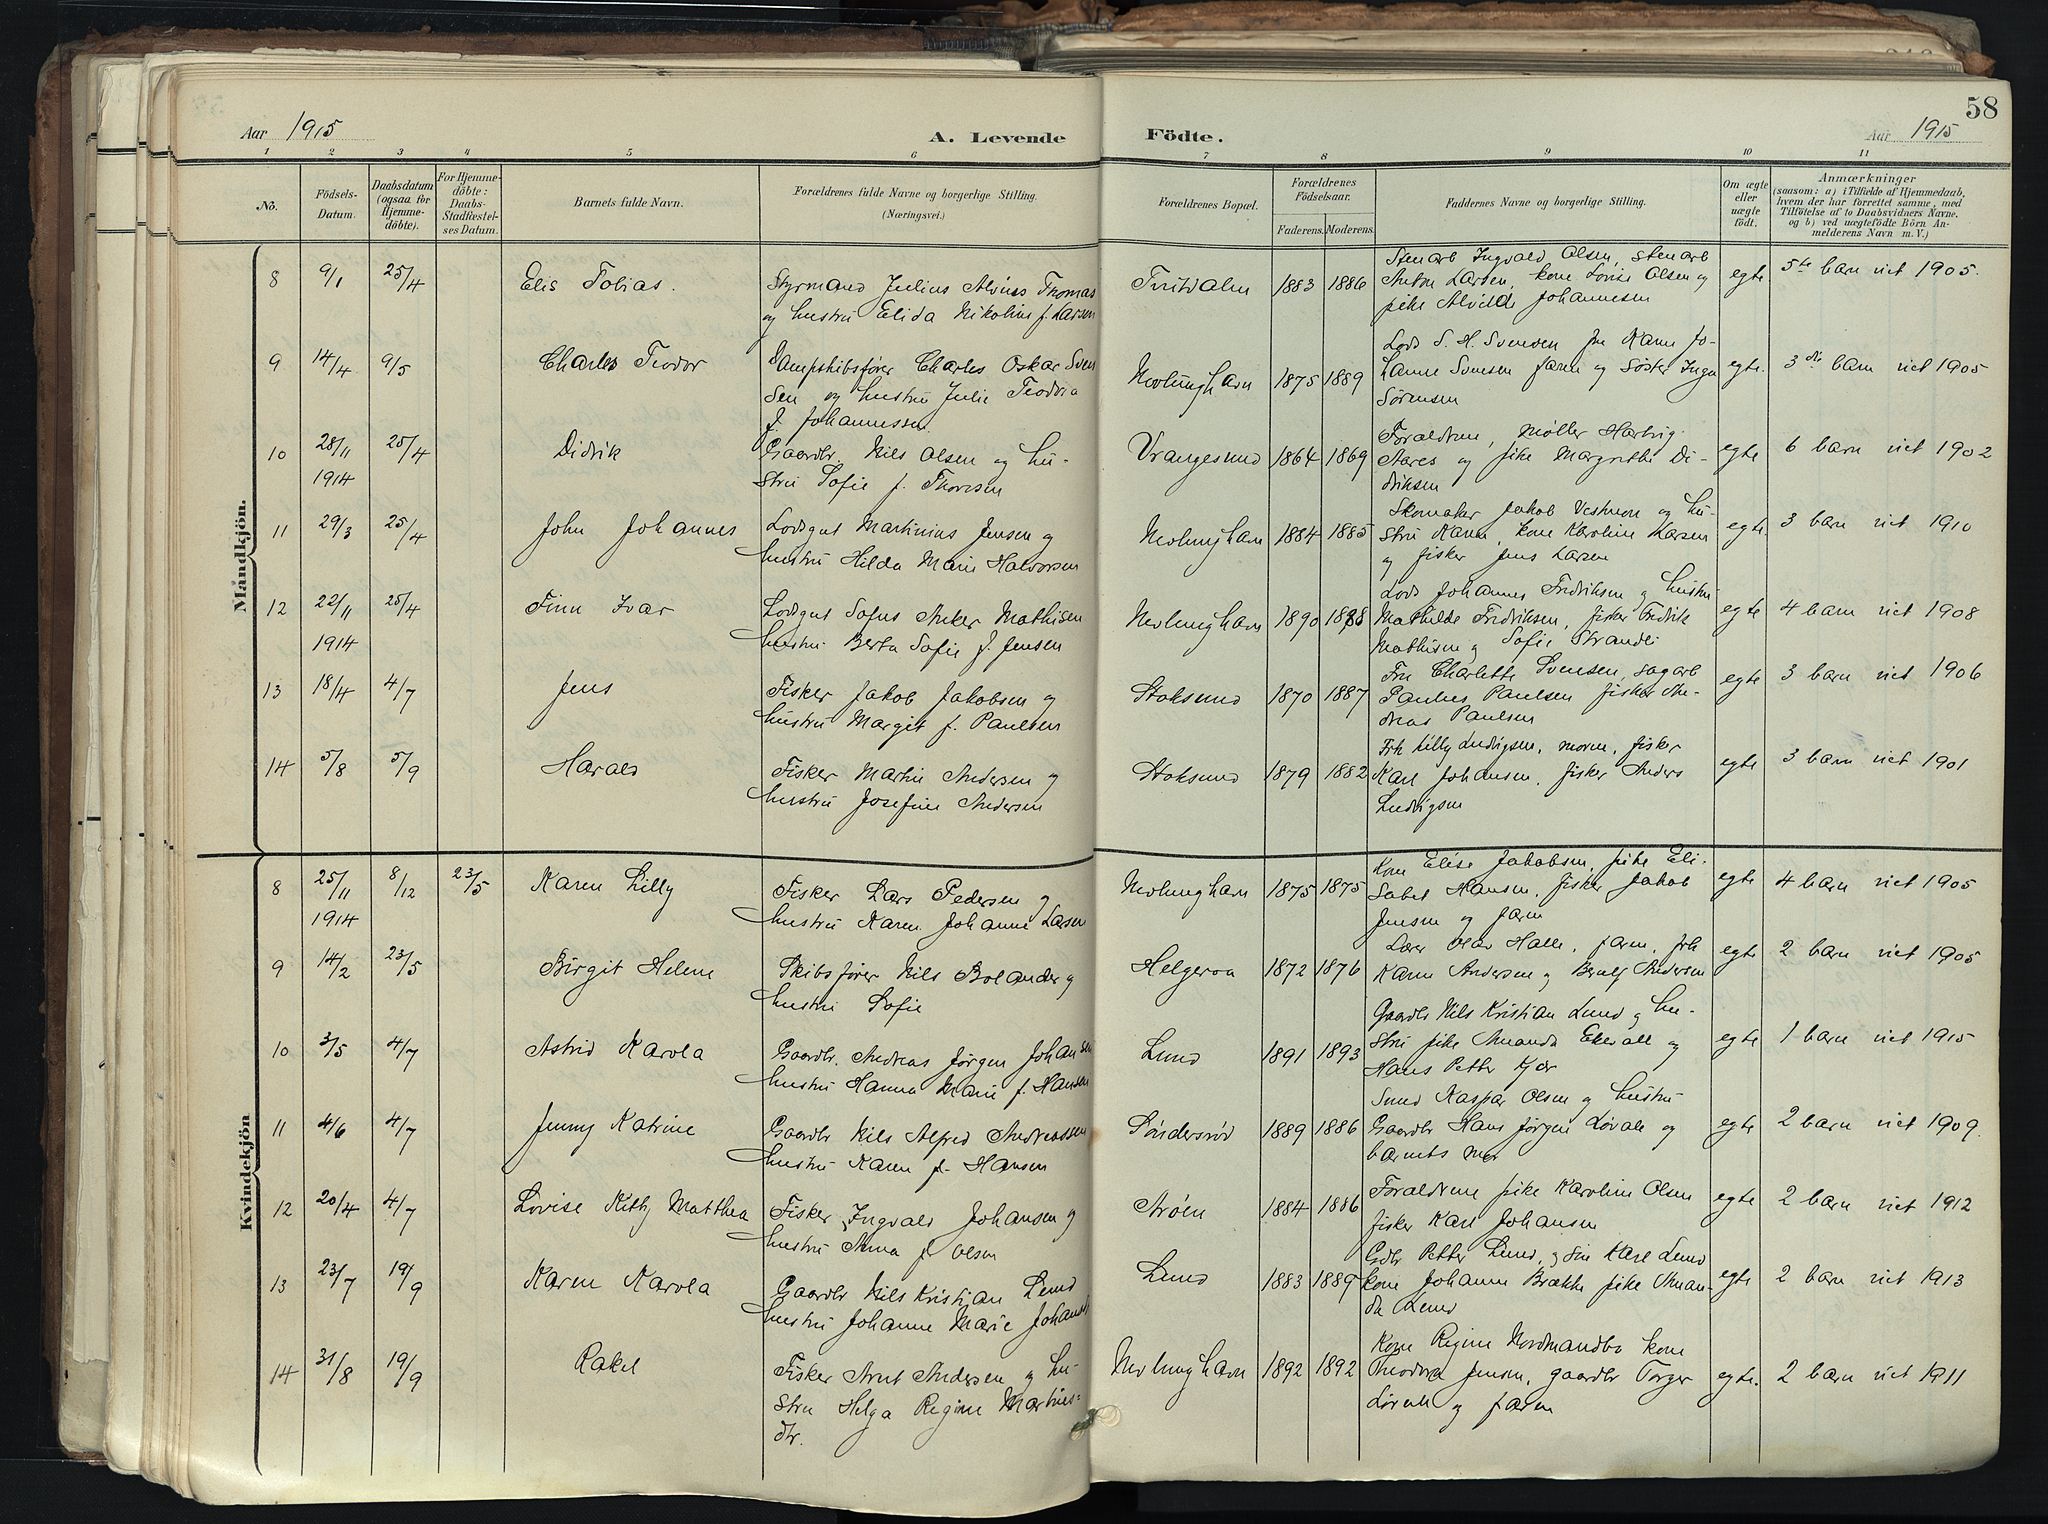 58
Aar 1915
A. Levende
Födte.
Aar 1915
1 2 3 4 5 6 7 8 9 10 11
No.
Födsels-
Datum.
Daabsdatum
(ogsaa for
Hjemme-
döbte).
For Hjemme-
döbte:
Daabs-
Stadfæstel-
ses Datum.
Barnets fulde Navn.
Forældrenes fulde Navne og borgerlige Stilling.
(Næringsvei.)
Forældrenes Bopæl.
Forældrenes
Födselsaar.
Faderens. Moderens.
Faddernes Navne og borgerlige Stilling.
Om ægte
eller
uægte
født.
Anmærkninger
(saasom: a) i Tilfælde af Hjemmedaab,
hvem der har forrettet samme, med
Tilföielse af to Daabsvidners Navne,
og b) ved uægtefödte Börn An-
melderens Navn m. V.)
Mandkjön.
8 9/1 25/4 Elis Tobias.
Styrmand Julius Alvins Thomas
og hustru Elida Nikoline f. Larsen
1883 1886
Stenarb Ingvald Olsen, stenarb
Anton Larsen, kone Lovise Olsen og
pike Alvilde Johannesen
egte 5te barn viet 1905.
9 14/4 9/5 Charles Teodor
Dampskibsfører Charles Oskar Sven
sen og hustru Julie Teodora
f. Johannessen
Nevlunghavn 1875 1889
Lods S. H. Svensen fru Karen Jo-
hanne Svensen faren og Søster Inga
Sörensen
egte. 3die barn viet 1905
10 28/11 25/4 Didrik
1914
Gaardbr. Nils Olsen og hu-
stru Sofie f. Thoresen
Vrangesund 1864 1869
Foraldrene, Møller Hartvig
Aares og pike Margrethe Di-
driksen
egte 6 barn viet 1902
11 29/3 25/4 John Johannes
Lodsgut Martinius Jensen og
hustru Hilda Marie Halvorsen
Nevlunghavn 1884 1885
Skomaker Jakob Vestmon og hu-
stru Karen, kone Karoline Larsen
og fisker Jens Larsen
egte. 3 barn viet 1910
12 22/11 25/4 Finn Ivar
1914
Lodsgut Sofus Anker Mathisen
hustru Berta Sofie f. Jensen
Nevlunghavn 1890 1888
Lods Johannes Fredriksen og hustru
Mathilde Fredriksen, fisker Fredrik
Mathisen og Sofie Strande
egte 4 barn viet 1908
13 18/4 4/7 Jens
Fisker Jakob Jakobsen og
hustru Margit f. Paulsen
Stoksund 1870 1887
Fru Charlotte Svensen, sagarb
Paulus Paulsen fisker An-
dreas Paulsen
egte 3 barn viet 1906
14 5/8 5/9 Harald
Fisker Martin Andersen og
hustru Josefine Andersen
Stoksund 1879 1882
Frk Lilly Ludvigsen, moren, fisker
Karl Johansen, fisker Anders
Ludvigsen
egte 3 barn viet 1901
Kvindekjön
8 25/11 8/12 23/5 Karen Lilly
1914
Fisker Lars Pedersen og
hustru Karen Johanne Larsen
Nevlunghavn 1875 1875
Kone Elise Jakobsen, pike Eli-
sabet Hansen, fisker Jakob
Jensen og faren
egte 4 barn viet 1905
9 14/2 23/5 Birgit Helene
Skibsfører Nils Bolander og
hustru Sofie
Helgeroa 1872 1876
Lærer Olav Halle, faren, frk
Karen Andersen og Bernlf Andersen
egte 2 barn viet 1905
10 3/5 4/7 Astrid Karola
Gaardbr. Andreas Jørgen Johansen
hustru Hanna Marie f. Hansen
Lund 1891 1893
Gaardbr Nils Kristian Lund og hu-
stru pike Amanda Ekvall og
Hans Petter Kjær
egte 1 barn viet 1915
11 4/6 4/7 Jenny Katrine
Gaardbr Nils Alfred Andreassen
hustru Karen f. Hansen
Söndersröd 1889 1886
Smed Kaspar Olsen og hustru
Gaardbr Hans Jørgen Løvall og
barnets mor
egte 2 barn viet 1909.
12 20/4 4/7 Lovise Kitty Matthea
Fisker Ingvald Johansen og
hustru Anna f. Olsen
Arøen 1884 1886
Foraldrene pike Karoline Olsen
fisker Karl Johansen
egte 2 barn viet 1912
13 23/7 19/9 Karen Karola
Gaardbr Nils Kristian Lund
hustru Johanne Marie
Lund 1883 1889
Gdbr Petter Lund, og søn Karl Lund
kone Johanne Brække pike Aman-
da Lund
egte 2 barn viet 1913
14 31/8 19/9 Rakel
Fisker Arnt Andersen og hu-
stru Helga Regine Martins-
dtr.
Nevlunghavn 1892 1892
Kone Regine Nordmandbo kone
Theodora Jensen, gaardbr Torger
Løvall og faren
egte. 2 barn viet 1911